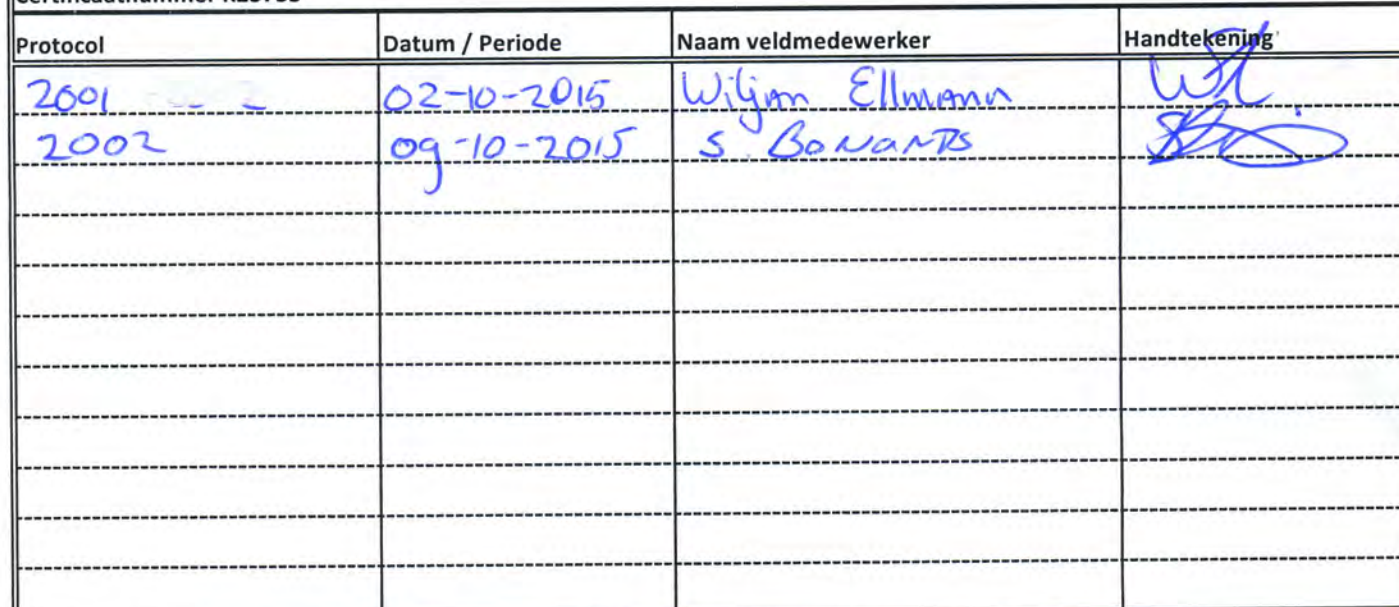 Protocol Datum / Periode Naam veldmedewerker Handtekening
2001 - - 02-10-2015 Wiljan Ellmann
2002 09-10-2015 S. Bonants